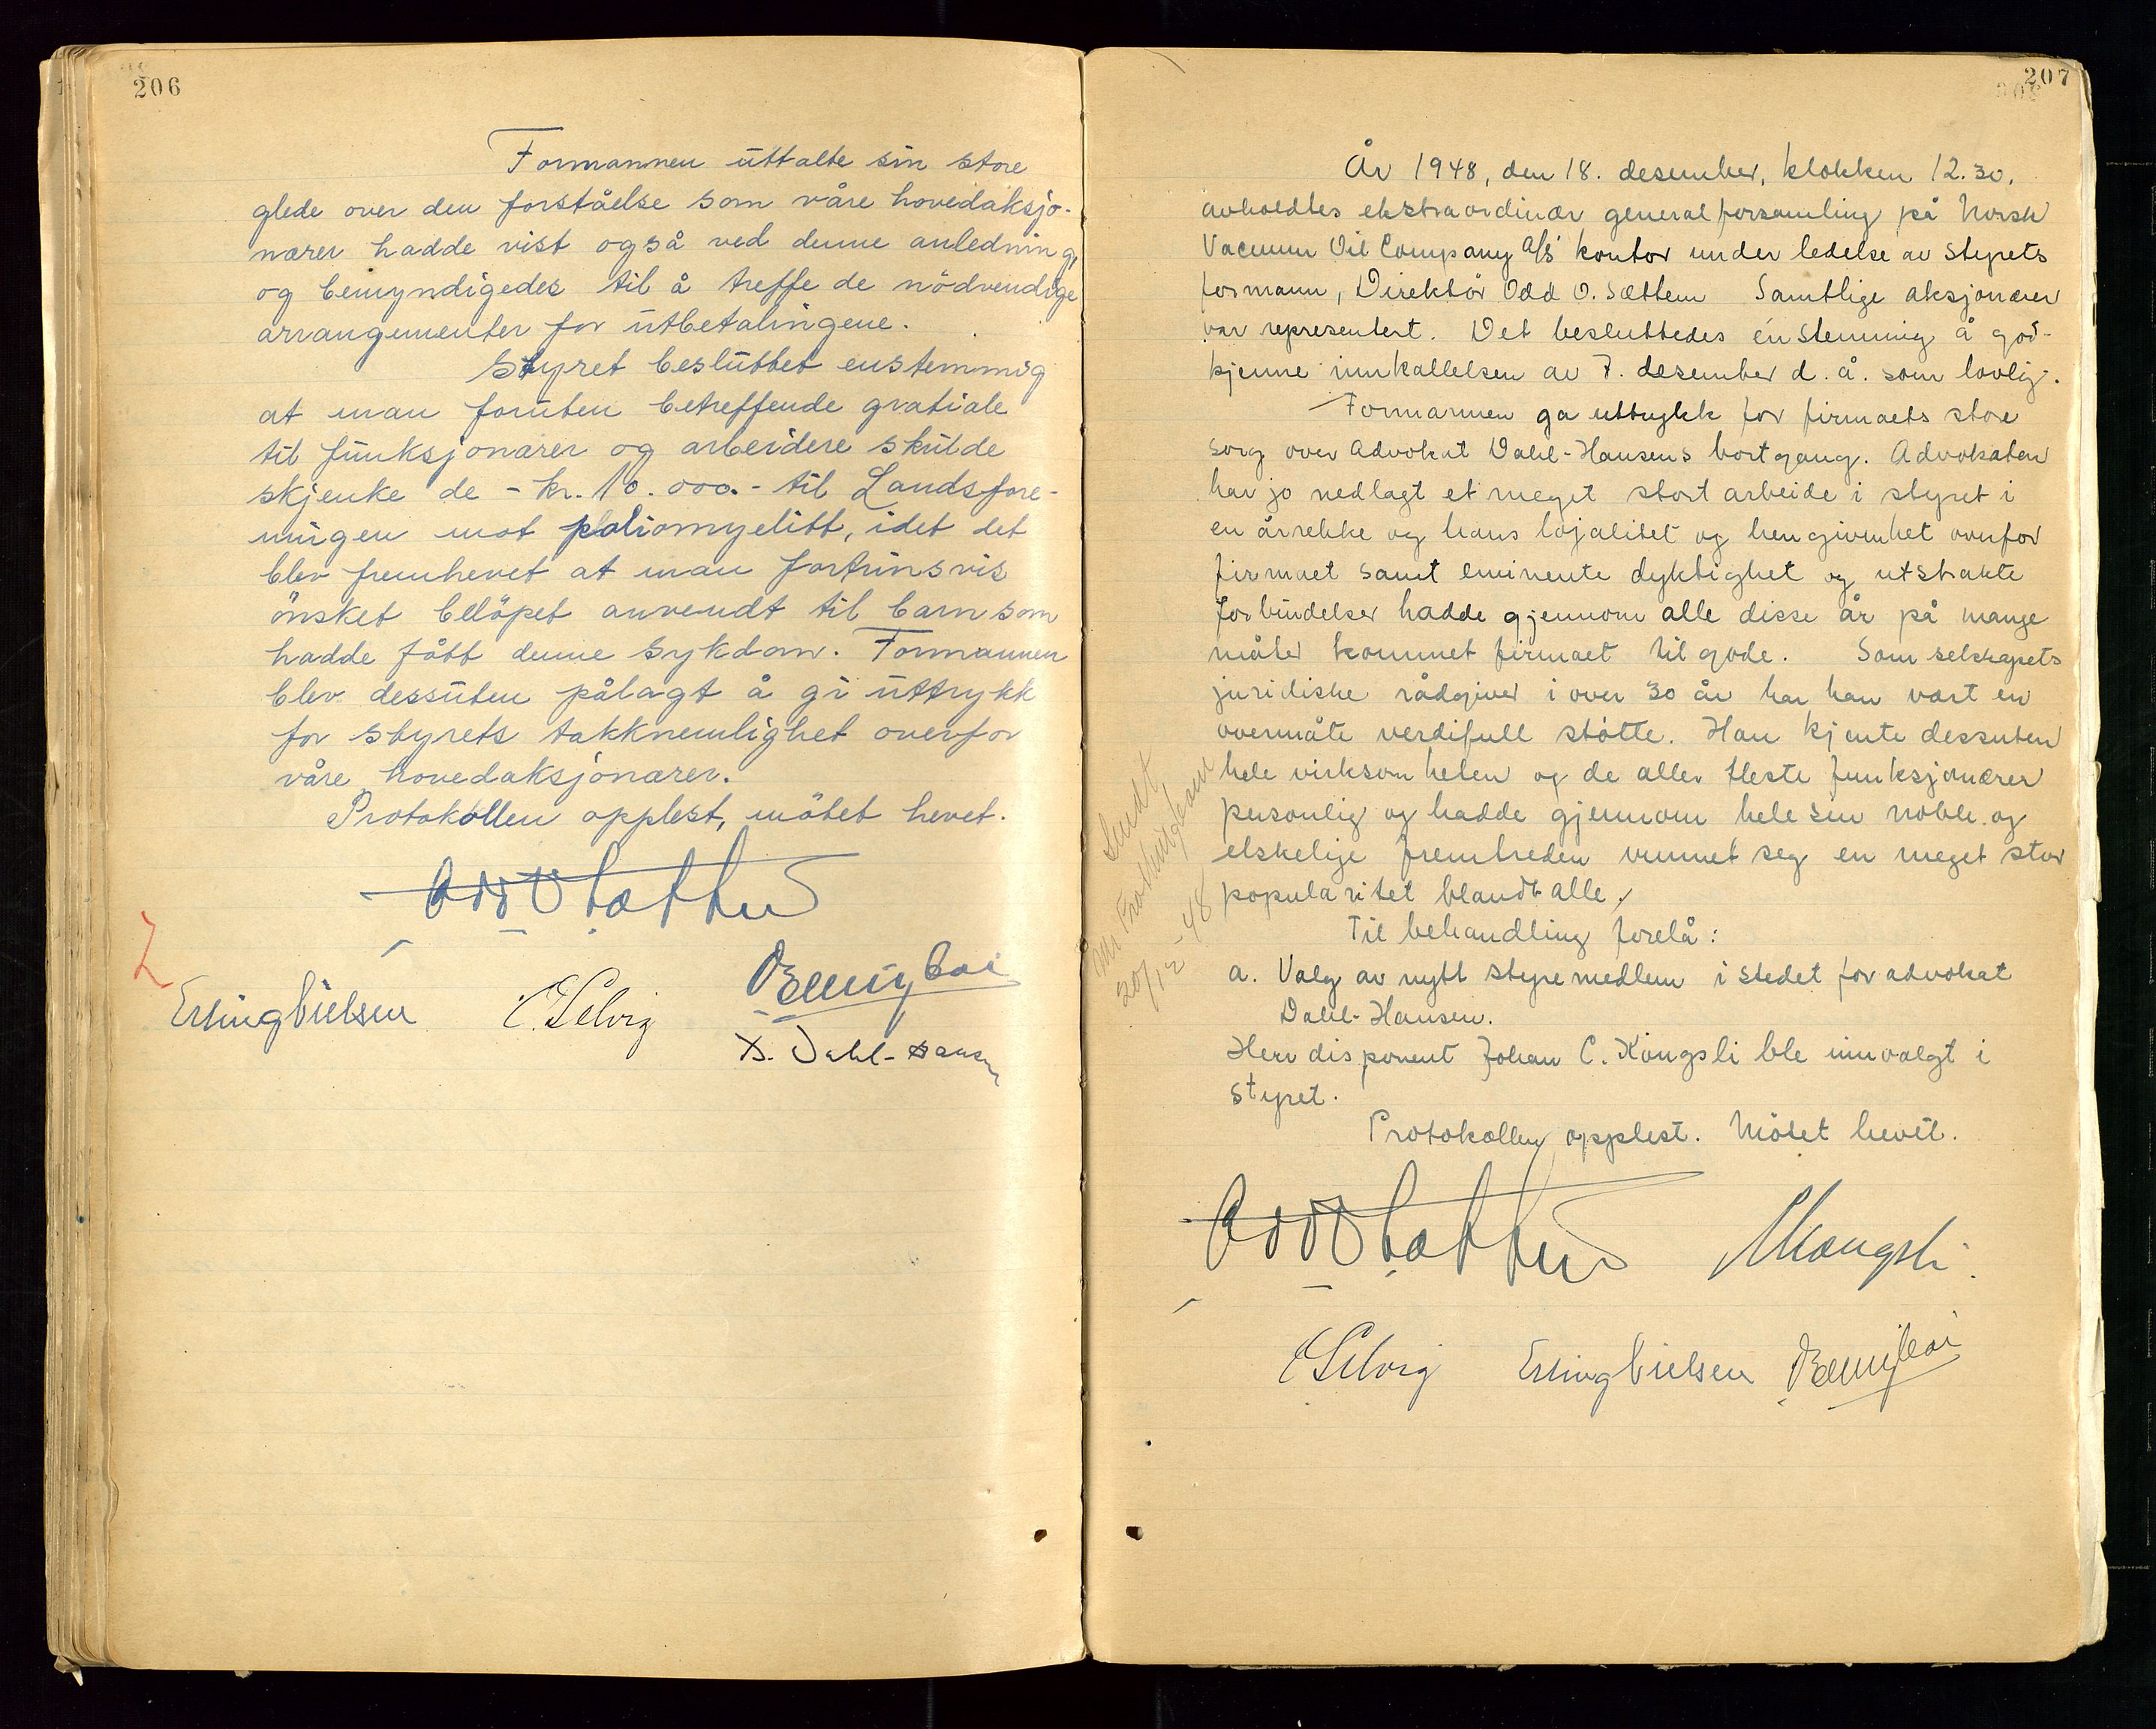 206
Formannen uttalte sin store
glede over den forståelse som våre hovedaksjo-
nærer hadde vist også ved denne anledning,
og bemyndigedes til å treffe de nödvendige
arrangementer for utbetalingene.
Styret besluttet enstemmig
at man foruten betreffende gratiale
til funksjonærer og arbeidere skulde
skjenke de - kr. 10.000.- til Landsfore-
ningen mot poliomyelitt, idet det
blev fremhevet at man fortrinsvis
önsket belöpet anvendt til barn som
hadde fått denne sykdom. Formannen
blev dessuten pålagt å gi uttrykk
for styrets takknemlighet overfor
våre hovedaksjonærer.
Protokollen opplest, mötet hevet.
Odd O Sættem
Erling Nielsen
C. Selvig
K. Dahl-Hansen
207
År 1948, den 18. desember, klokken 12.30,
avholdtes ekstraordinær generalforsamling på Norsk
Vacuum Oil Company A/S' kontor under ledelse av styrets
formann, Direktör Odd O. Sættem Samtlige aksjonærer
var representert. Det besluttedes énstemmig å god-
kjenne innkallelsen av 7. desember d. å. som lovlig.
Formannen ga uttrykk for firmaets store
sorg over Advokat Dahl-Hansens bortgang. Advokaten
har jo nedlagt et meget stort arbeide i styret i
en årrekke og hans lojalitet og hengivenhet overfor
firmaet samt eminente dyktighet og utstrakte
forbindelser hadde gjennom alle disse år på mange
måter kommet firmaet til gode. Som selskapets
juridiske rådgiver i over 30 år har han vært en
overmåte verdifull stötte. Han kjente dessuten
hele virksomheten og de aller fleste funksjonærer
personlig og hadde gjennom hele sin noble og
elskelige fremtreden vunnet seg en meget stor
popularitet blandt alle.
Til behandling forelå:
a. Valg av nytt styremedlem i stedet for advokat
Dahl-Hansen.
Herr disponent Johan C. Kongsli ble innvalgt i
styret.
Protokollen opplest. Mötet hevet.
Sendt
20/12-48
Odd O Sættem
Kongsli.
C Selvig
Erling Nielsen